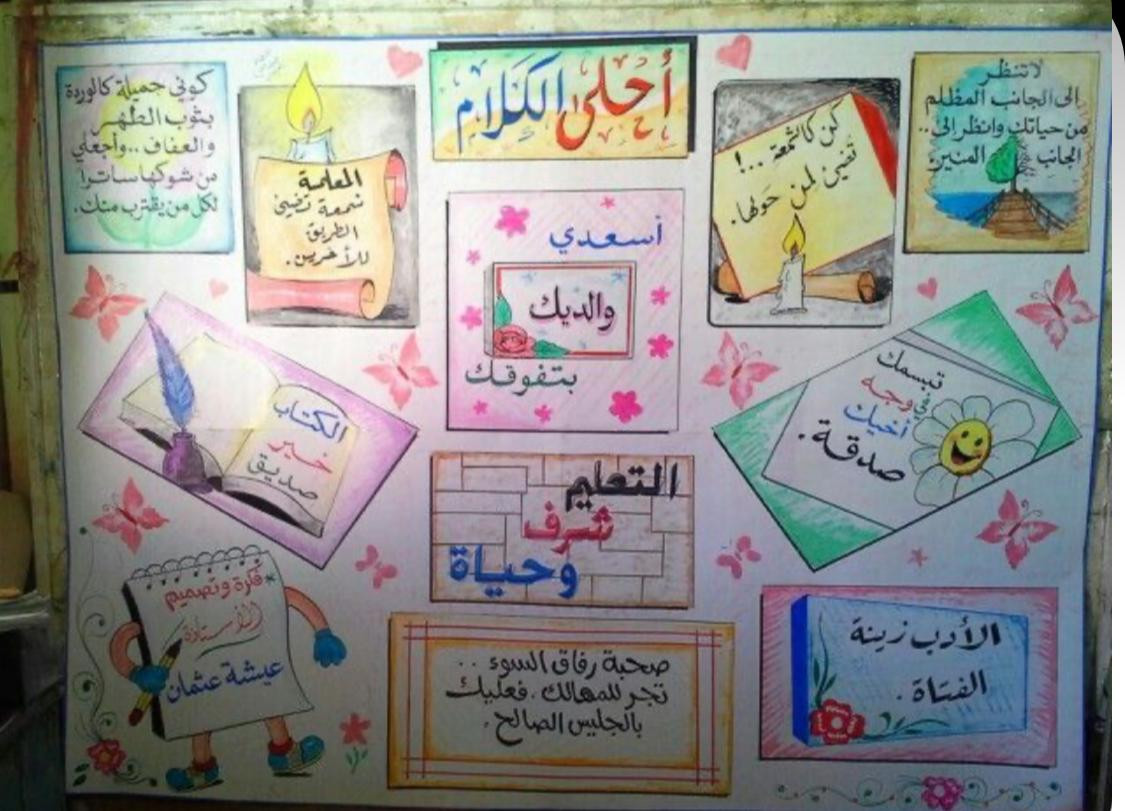 أحلى الكلام
لا تنظر
إلى الجانب المظلم
من حياتك وانظر إلى..
الجانب المنير.
كن كالشمعة ..!
تضيئ لمن حولها.
المعلمة
شمعة تضيئ
الطريق
للأخرين.
كوني جميلة كالوردة
بثوب الطهر
والعفاف ..واجعلي
من شوكها ساترا
لكل من يقترب منك.
أسعدي
والديك
بتفوقك
تبسمك
في وجه
أخيك
صدقة.
الكتاب
خير
صديق
التعليم
شرف
وحياة
الأدب زينة
الفتاة.
صحبة رفاق السوء ..
تجر للمهالك. فعليك
بالجليس الصالح.
فكرة وتصميم
الأستاذة
عيشة عثمان